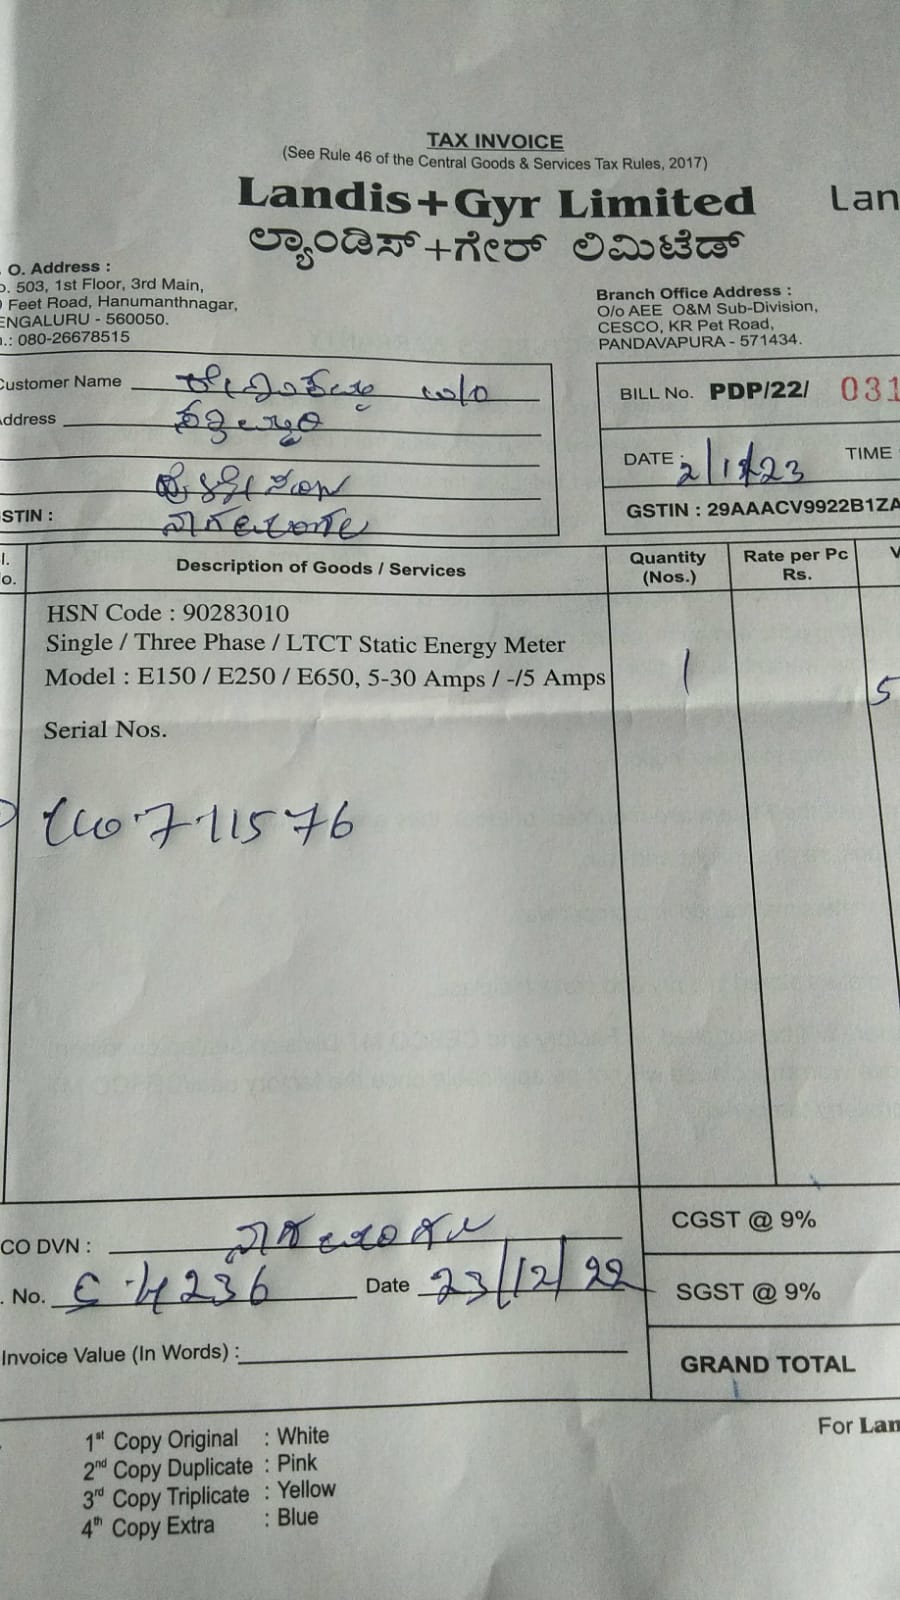 TAX INVOICE
(See Rule 46 of the Central Goods & Services Tax Rules, 2017)
Landis+Gyr Limited
Lan
ಲ್ಯಾಂಡಿಸ್+ಗೇರ್ ಲಿಮಿಟೆಡ್
. O. Address :
o. 503, 1st Floor, 3rd Main,
Feet Road, Hanumanthnagar,
ENGALURU - 560050.
.: 080-26678515
Branch Office Address :
O/o AEE O&M Sub-Division,
CESCO, KR Pet Road,
PANDAVAPURA - 571434.
Customer Name
ddress
STIN :
BILL No. PDP/22/ 031
DATE : 2/1/23 TIME
GSTIN : 29AAACV9922B1ZA
l. o. Description of Goods / Services Quantity (Nos.) Rate per Pc Rs. V
HSN Code : 90283010
Single / Three Phase / LTCT Static Energy Meter
Model : E150 / E250 / E650, 5-30 Amps / -/5 Amps 1 5
Serial Nos.
711576
CO DVN :
. No. 4236 Date 23/12/22
Invoice Value (In Words) :
CGST @ 9%
SGST @ 9%
GRAND TOTAL
For Lan
1st Copy Original : White
2nd Copy Duplicate : Pink
3rd Copy Triplicate : Yellow
4th Copy Extra : Blue